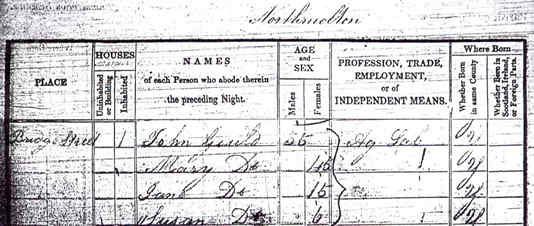 Northmolton
PLACE HOUSES Uninhabited or Building Inhabited NAMES of each Person who abode therein the preceding Night. AGE and SEX Males Females PROFESSION, TRADE, EMPLOYMENT, or of INDEPENDENT MEANS. Where Born Whether Born in same County Whether Born in Scotland, Ireland, or Foreign Parts.
Bridge Street 1 John 55 Ag Lab
Mary Do 45
Jane Do 15
Susan Do 6